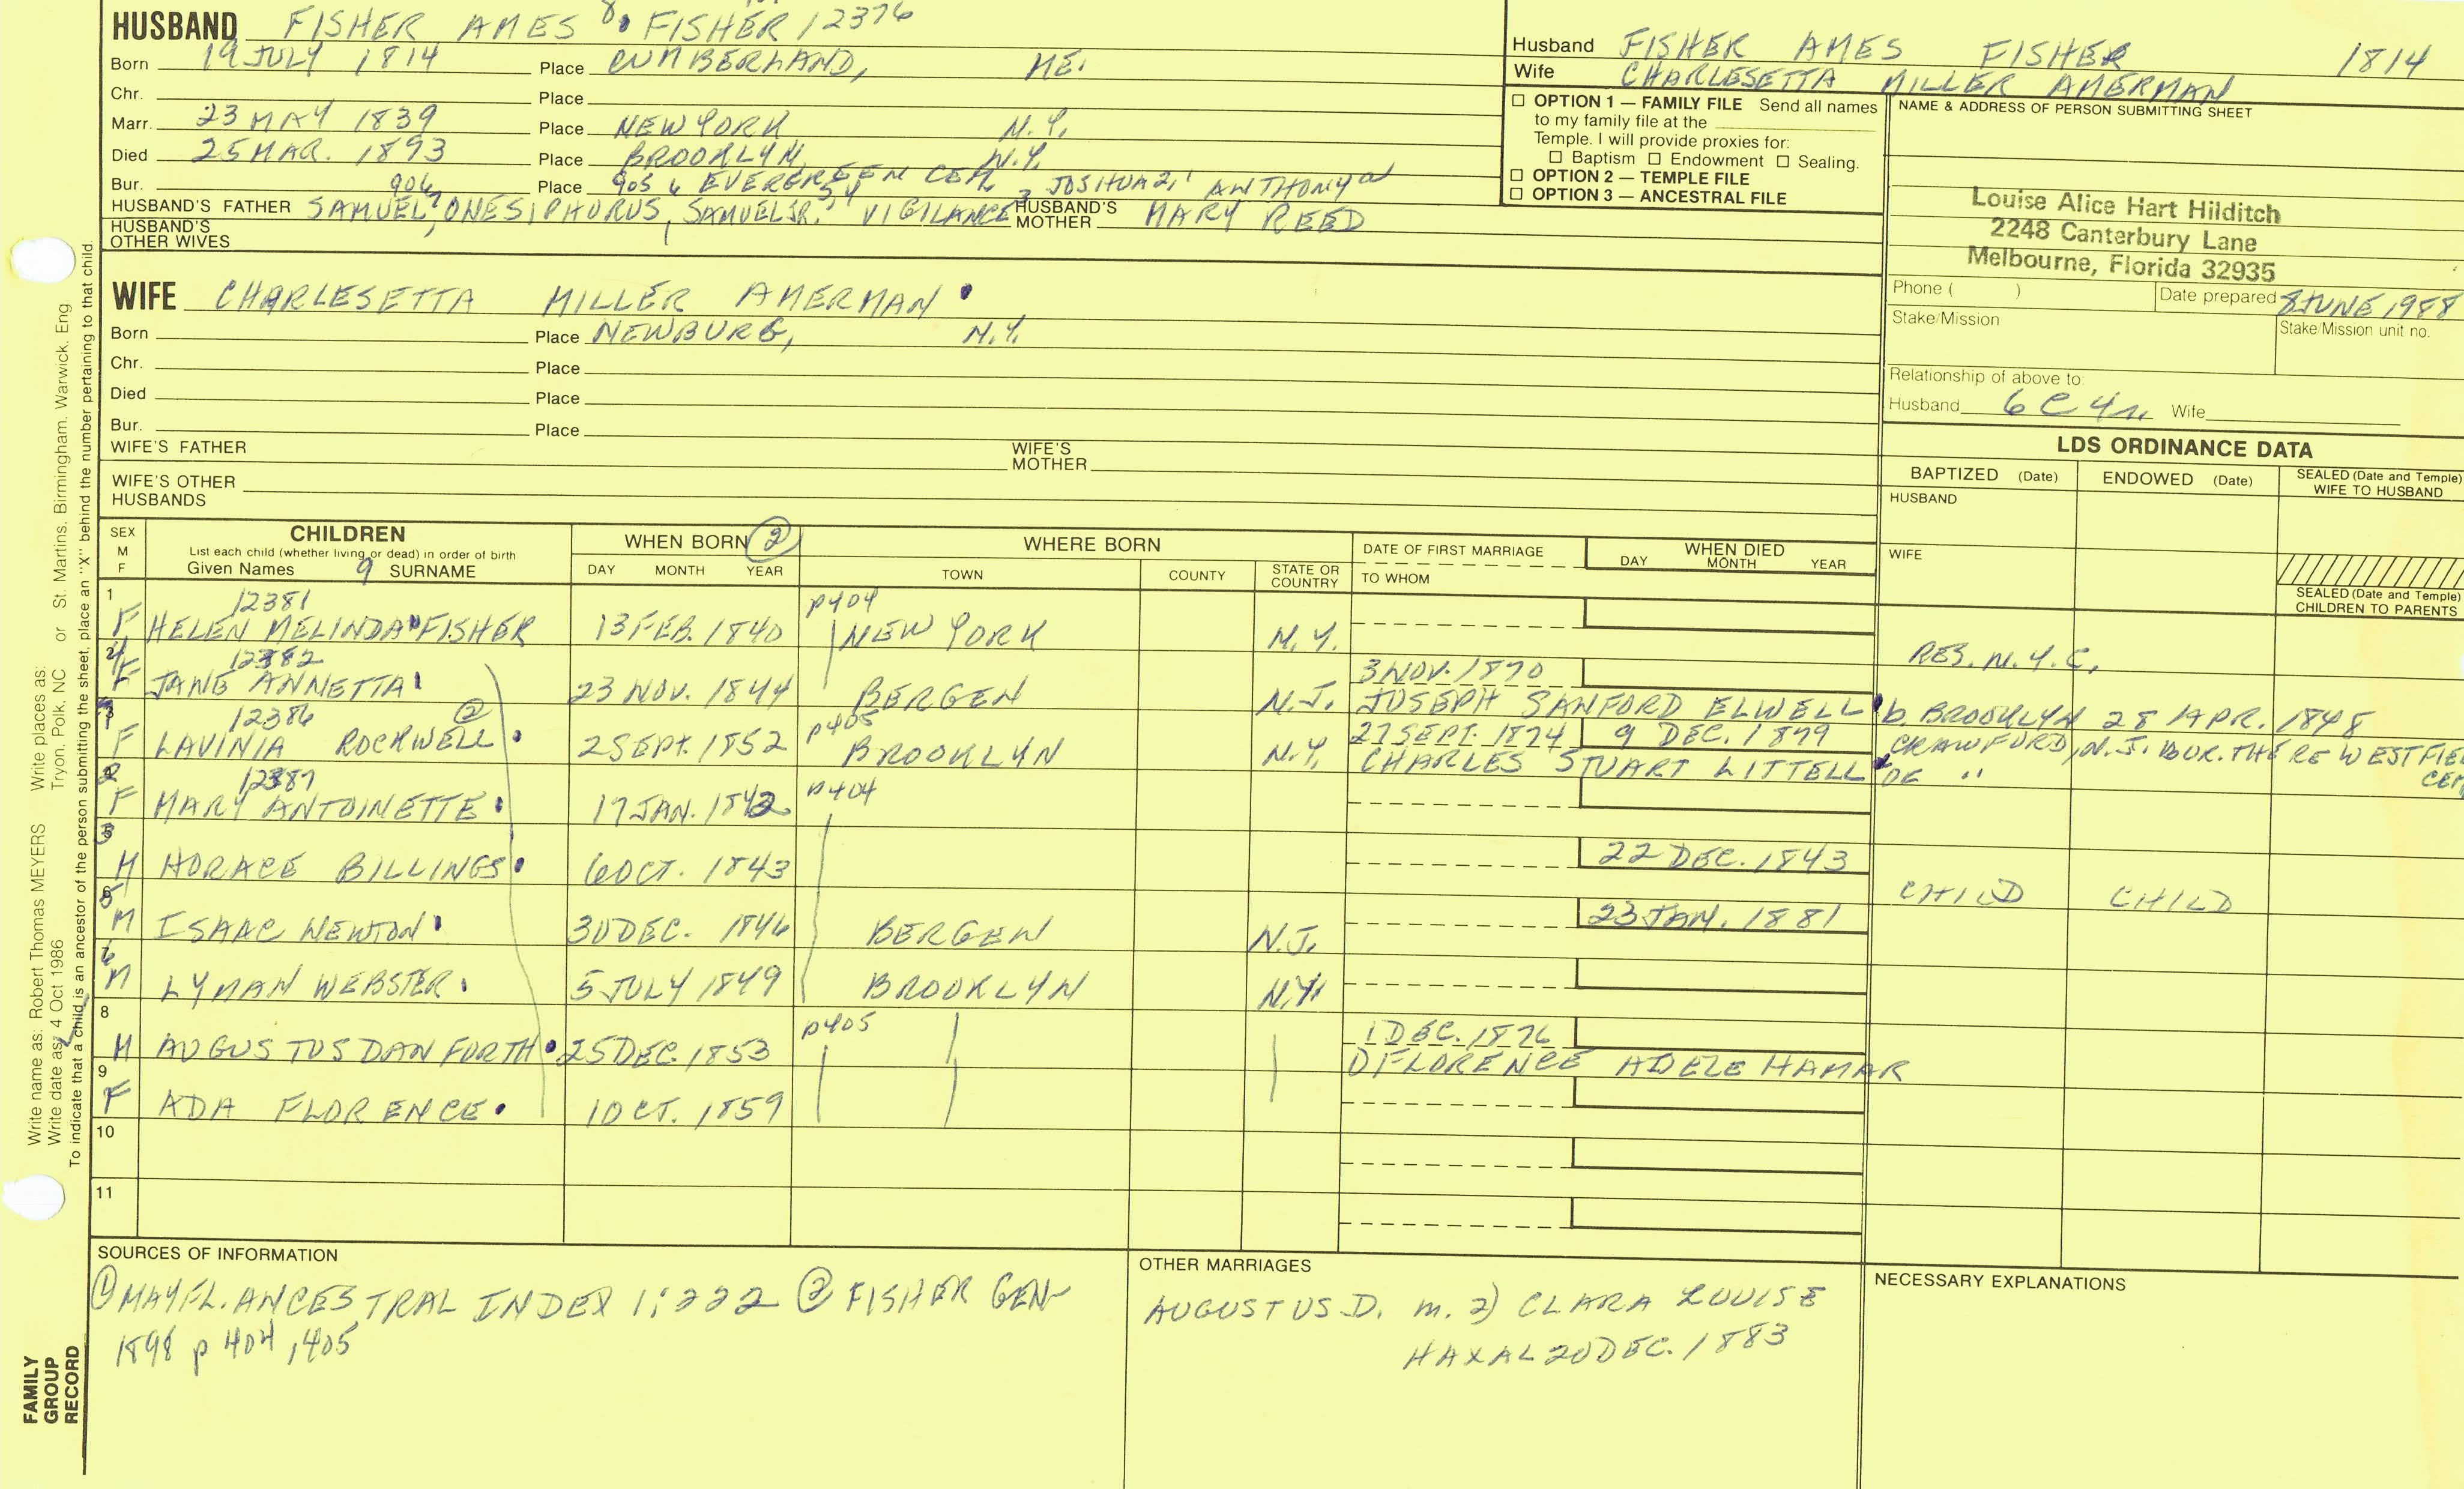 HUSBAND FISHER AMES 8 FISHER 12376
Born 19 JULY 1814 Place CUMBERLAND, ME.
Chr. Place
Marr. 23 MAY 1839 Place NEW YORK N.Y.
Died 25 MAR. 1893 Place BROOKLYN, N.Y.
Bur. Place EVERGREEN CEM
HUSBAND'S FATHER SAMUEL 7, ONESIPHORUS, SAMUEL JR. VIGILANCE 3 JOSHUA 2, ANTHONY HUSBAND'S MOTHER MARY REED
HUSBAND'S OTHER WIVES
Husband FISHER AMES FISHER 1814
Wife CHARLESETTA MILLER AMERMAN
☐ OPTION 1 — FAMILY FILE Send all names
to my family file at the
Temple. I will provide proxies for:
☐ Baptism ☐ Endowment ☐ Sealing.
☐ OPTION 2 — TEMPLE FILE
☐ OPTION 3 — ANCESTRAL FILE
NAME & ADDRESS OF PERSON SUBMITTING SHEET
Louise Alice Hart Hilditch
2248 Canterbury Lane
Melbourne, Florida 32935
Phone ( ) Date prepared 8 JUNE 1988
Stake/Mission Stake/Mission unit no.
Relationship of above to:
Husband 6 C 4 r. Wife
WIFE CHARLESETTA MILLER AMERMAN
Born Place NEWBURG, N.Y.
Chr. Place
Died Place
Bur. Place
WIFE'S FATHER WIFE'S MOTHER
WIFE'S OTHER HUSBANDS
LDS ORDINANCE DATA
BAPTIZED (Date) ENDOWED (Date) SEALED (Date and Temple) WIFE TO HUSBAND
HUSBAND
WIFE
SEALED (Date and Temple) CHILDREN TO PARENTS
SEX M F
CHILDREN
List each child (whether living or dead) in order of birth
Given Names 9 SURNAME
WHEN BORN 2
DAY MONTH YEAR
WHERE BORN
TOWN COUNTY STATE OR COUNTRY
DATE OF FIRST MARRIAGE
TO WHOM
WHEN DIED
DAY MONTH YEAR
1 12381 p404
F HELEN MELINDA FISHER 13 FEB. 1840 NEW YORK N.Y.
RES. N.Y.C.
2 12382 3 NOV. 1870
F JANE ANNETTA 23 NOV. 1844 BERGEN N.J. JOSEPH SANFORD ELWELL b. BROOKLYN 28 APR. 1848
3 12386 2 p405 27 SEPT. 1874 9 DEC. 1879 CRAWFORD, N.J. BUR. THERE WESTFIE
F LAVINIA ROCKWELL 2 SEPT. 1852 BROOKLYN N.Y. CHARLES STUART LITTELL OF " CEM
12387 p404
F MARY ANTOINETTE 17 JAN. 1842
5
M HORACE BILLINGS 6 OCT. 1843 22 DEC. 1843
CHILD CHILD
6
M ISAAC NEWTON 30 DEC. 1846 BERGEN N.J. 23 JAN. 1881
7
M LYMAN WEBSTER 5 JULY 1849 BROOKLYN N.Y.
8 p405 1 DEC. 1876
M AUGUSTUS DANFORTH 25 DEC. 1853 FLORENCE ADELE HAMAR
9
F ADA FLORENCE 1 OCT. 1859
10
11
SOURCES OF INFORMATION
1 MAYFL. ANCESTRAL INDEX 1:222 2 FISHER GEN
1898 p 404, 405
OTHER MARRIAGES
AUGUSTUS D. m. 2) CLARA LOUISE
HAXAL 20 DEC. 1883
NECESSARY EXPLANATIONS
Write name as: Robert Thomas MEYERS Write places as: Tryon, Polk, NC or St. Martins, Birmingham, Warwick, Eng
Write date as: 4 Oct 1986
To indicate that a child is an ancestor of the person submitting the sheet, place an "X" behind the number pertaining to that child.
FAMILY
GROUP
RECORD